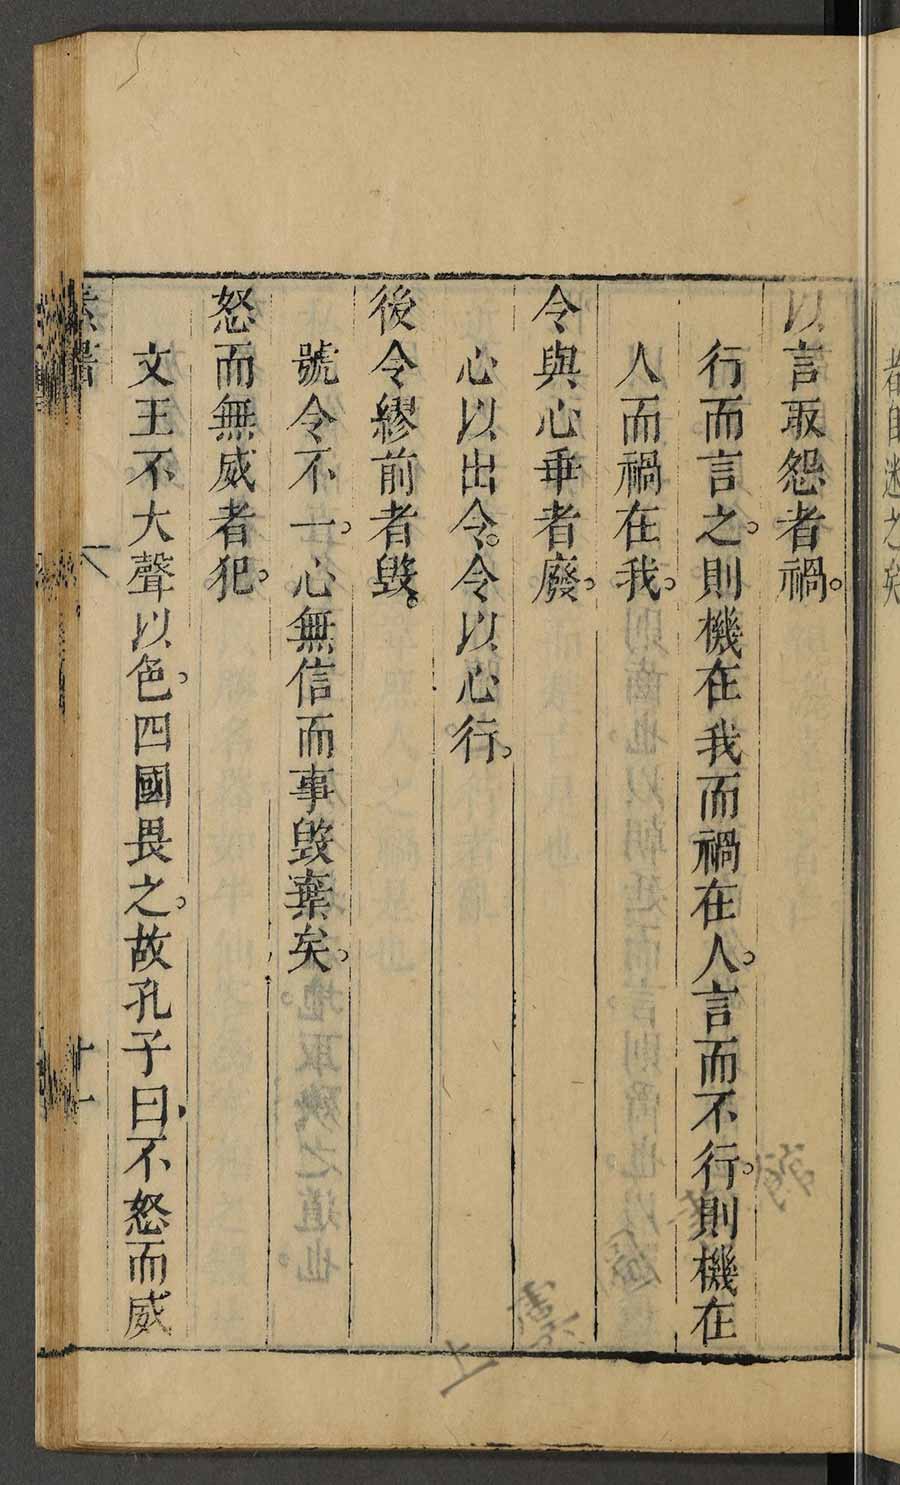 以言取怨者禍。
行而言之。則機在我而禍在人。言而不行。則機在
人而禍在我。
令與心乖者廢。
心以出令。令以心行。
後令繆前者毀。
號令不一。心無信而事毀棄矣。
怒而無威者犯。
文王不大聲以色。四國畏之。故孔子曰。不怒而威
素書
十一